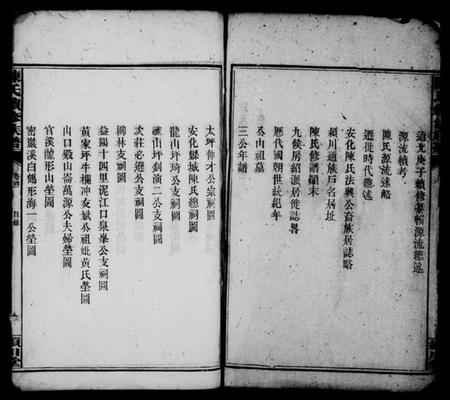 道光庚子續修舉輯源流總述
源流續考
陳氏源流述略
遷徙時代總述
安化陳氏法興公畜族居誌略
潁川通族戶名居址
陳氏修譜顛末
九候房紹派居徙誌畧
歷代國朝世統紀年
公山祖墓
三公年譜
太坪仲才公宗祠圖
安化縣城陳氏總祠圖
龍山坪琦公支祠圖
山坪釗演二公支祠圖
弐莊必遜公支祠圖
柳林支祠圖
益陽十四里泥江口泉峯公支祠圖
黃家坪牛欄冲友斌公祖妣黃氏塋圖
山口毀山崙萬源公夫婦塋圖
官溪龍形山塋圖
密巖溪白鶴形海一公塋圖
陳氏續修族譜
目錄
潁川堂